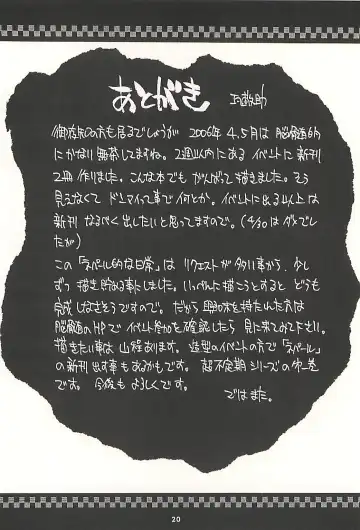 あとがき
御存知の方も居るでしょうが 2006年 4.5月は 脳髄的
にかなり無茶してますね。2週以内にある イベントに新刊
2冊 作りました。こんな本でも がんばって描きました。そう
見えなくて ドンマイって事で何とか。イベントに出る以上は
新刊 なるべく出したいと思ってますので。(4/30はダメでし
たが)
この「スペール的な日常」は リクエストが多い事から、少し
ずつ描き貯める事にしました。いっぺんに描こうとすると どうも
完成しなさそうですので。だから 興味を持たれた方は
脳髄のHPで イベント参加を確認したら 見に来て下さい。
描きたい事は 山程あります。造型のイベントの方で「スペール」
の新刊 出す事もあるかもです。超不定期シリーズの
です。 今後も よろしくです。
ではまた。
20